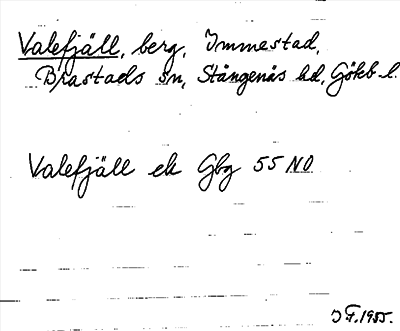 Valefjäll, berg, Immestad,
Brastads sn, Stångenäs hd, Gökb l.
Valefjäll ek Gbg 55 NO
J F. 1955.